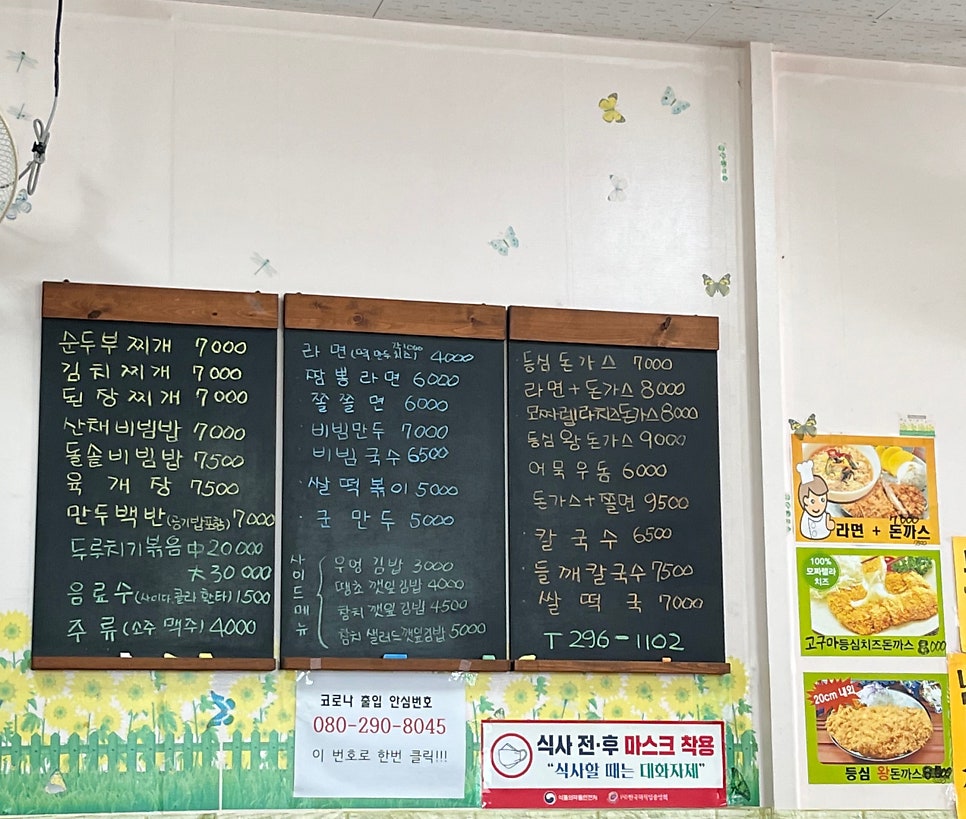 순두부찌개 7000
김치찌개 7000
된장찌개 7000
산채비빔밥 7000
돌솥비빔밥 7500
육개장 7500
만두백반(공기밥포함) 7000
두루치기볶음 中 20000
大 30000
음료수(사이다 콜라 환타) 1500
주류(소주 맥주) 4000
라면(떡 만두 치즈) 4000
짬뽕라면 6000
쫄쫄면 6000
비빔만두 7000
비빔국수 6500
쌀떡볶이 5000
군만두 5000
사이드메뉴
우엉김밥 3000
땡초깻잎김밥 4000
참치깻잎김밥 4500
참치샐러드깻잎김밥 5000
등심돈가스 7000
라면+돈가스 8000
모짜렐라치즈돈가스 8000
등심왕돈가스 9000
어묵우동 6000
돈가스+쫄면 9500
칼국수 6500
들깨칼국수 7500
쌀떡국 7000
T 296-1102
코로나 출입 안심번호
080-290-8045
이 번호로 한번 클릭!!!
식사 전·후 마스크 착용
“식사할 때는 대화자제”
식품의약품안전처
라면 + 돈까스
100%
모짜렐라
치즈
고구마등심치즈돈까스
20cm 내외
등심 왕돈까스